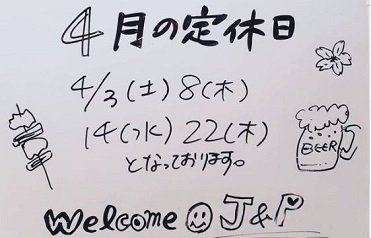 4月の定休日
4/3(土)8(木)
14(水)22(木)
となっております。
BEER
Welcome J&P